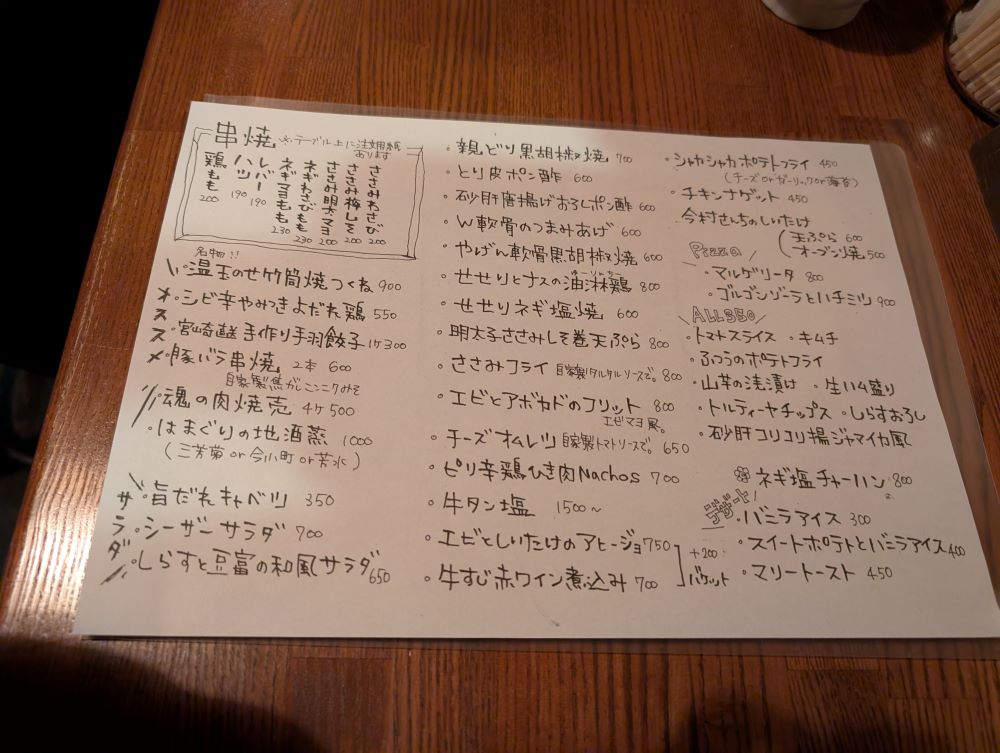 串焼 ※テーブル上に注文用紙
あります
鶏もも 200
ハツ 190
レバー 190
ネギマヨもも 230
ネギわさびもも 230
ささみ明太マヨ 200
ささみ梅しそ 200
ささみわさび 200
名物!!
温玉のせ竹筒焼つくね 900
オススメ
シビ辛やみつきよだれ鶏 550
宮崎直送手作り手羽餃子 1ヶ300
豚バラ串焼 2本 600
自家製焦がしニンニクみそ
魂の肉焼売 4ヶ500
はまぐりの地酒蒸 1000
(三芳菊 or 今小町 or 芳水)
サラダ
旨だれキャベツ 350
・シーザーサラダ 700
・しらすと豆富の和風サラダ 650
・親どり黒胡椒焼 700
・とり皮ポン酢 600
・砂肝唐揚げおろしポン酢 600
・W軟骨のつまみあげ 600
・やげん軟骨黒胡椒焼 600
・せせりとナスの油淋鶏 800
ユーリンチー
・せせりネギ塩焼 600
・明太子ささみしそ巻天ぷら 800
・ささみフライ 自家製タルタルソースで。 800
・エビとアボカドのフリット 800
エビマヨ風。
・チーズオムレツ 自家製トマトソースで。 650
・ピリ辛鶏ひき肉Nachos 700
・牛タン塩 1500〜
・エビとしいたけのアヒージョ 750
・牛すじ赤ワイン煮込み 700
+200
バケット
・シャカシャカポテトフライ 450
(チーズorガーリックor海苔)
・チキンナゲット 450
・今村さんちのしいたけ
天ぷら 600
オーブン焼 500
Pizza
・マルゲリータ 800
・ゴルゴンゾーラとハチミツ 900
ALL350
・トマトスライス ・キムチ
・ふつうのポテトフライ
・山芋の浅漬け ・生ハム盛り
・トルティーヤチップス ・しらすおろし
・砂肝コリコリ揚ジャマイカ風
ネギ塩チャーハン 800
デザート!
・バニラアイス 300
・スイートポテトとバニラアイス 400
・マリートースト 450